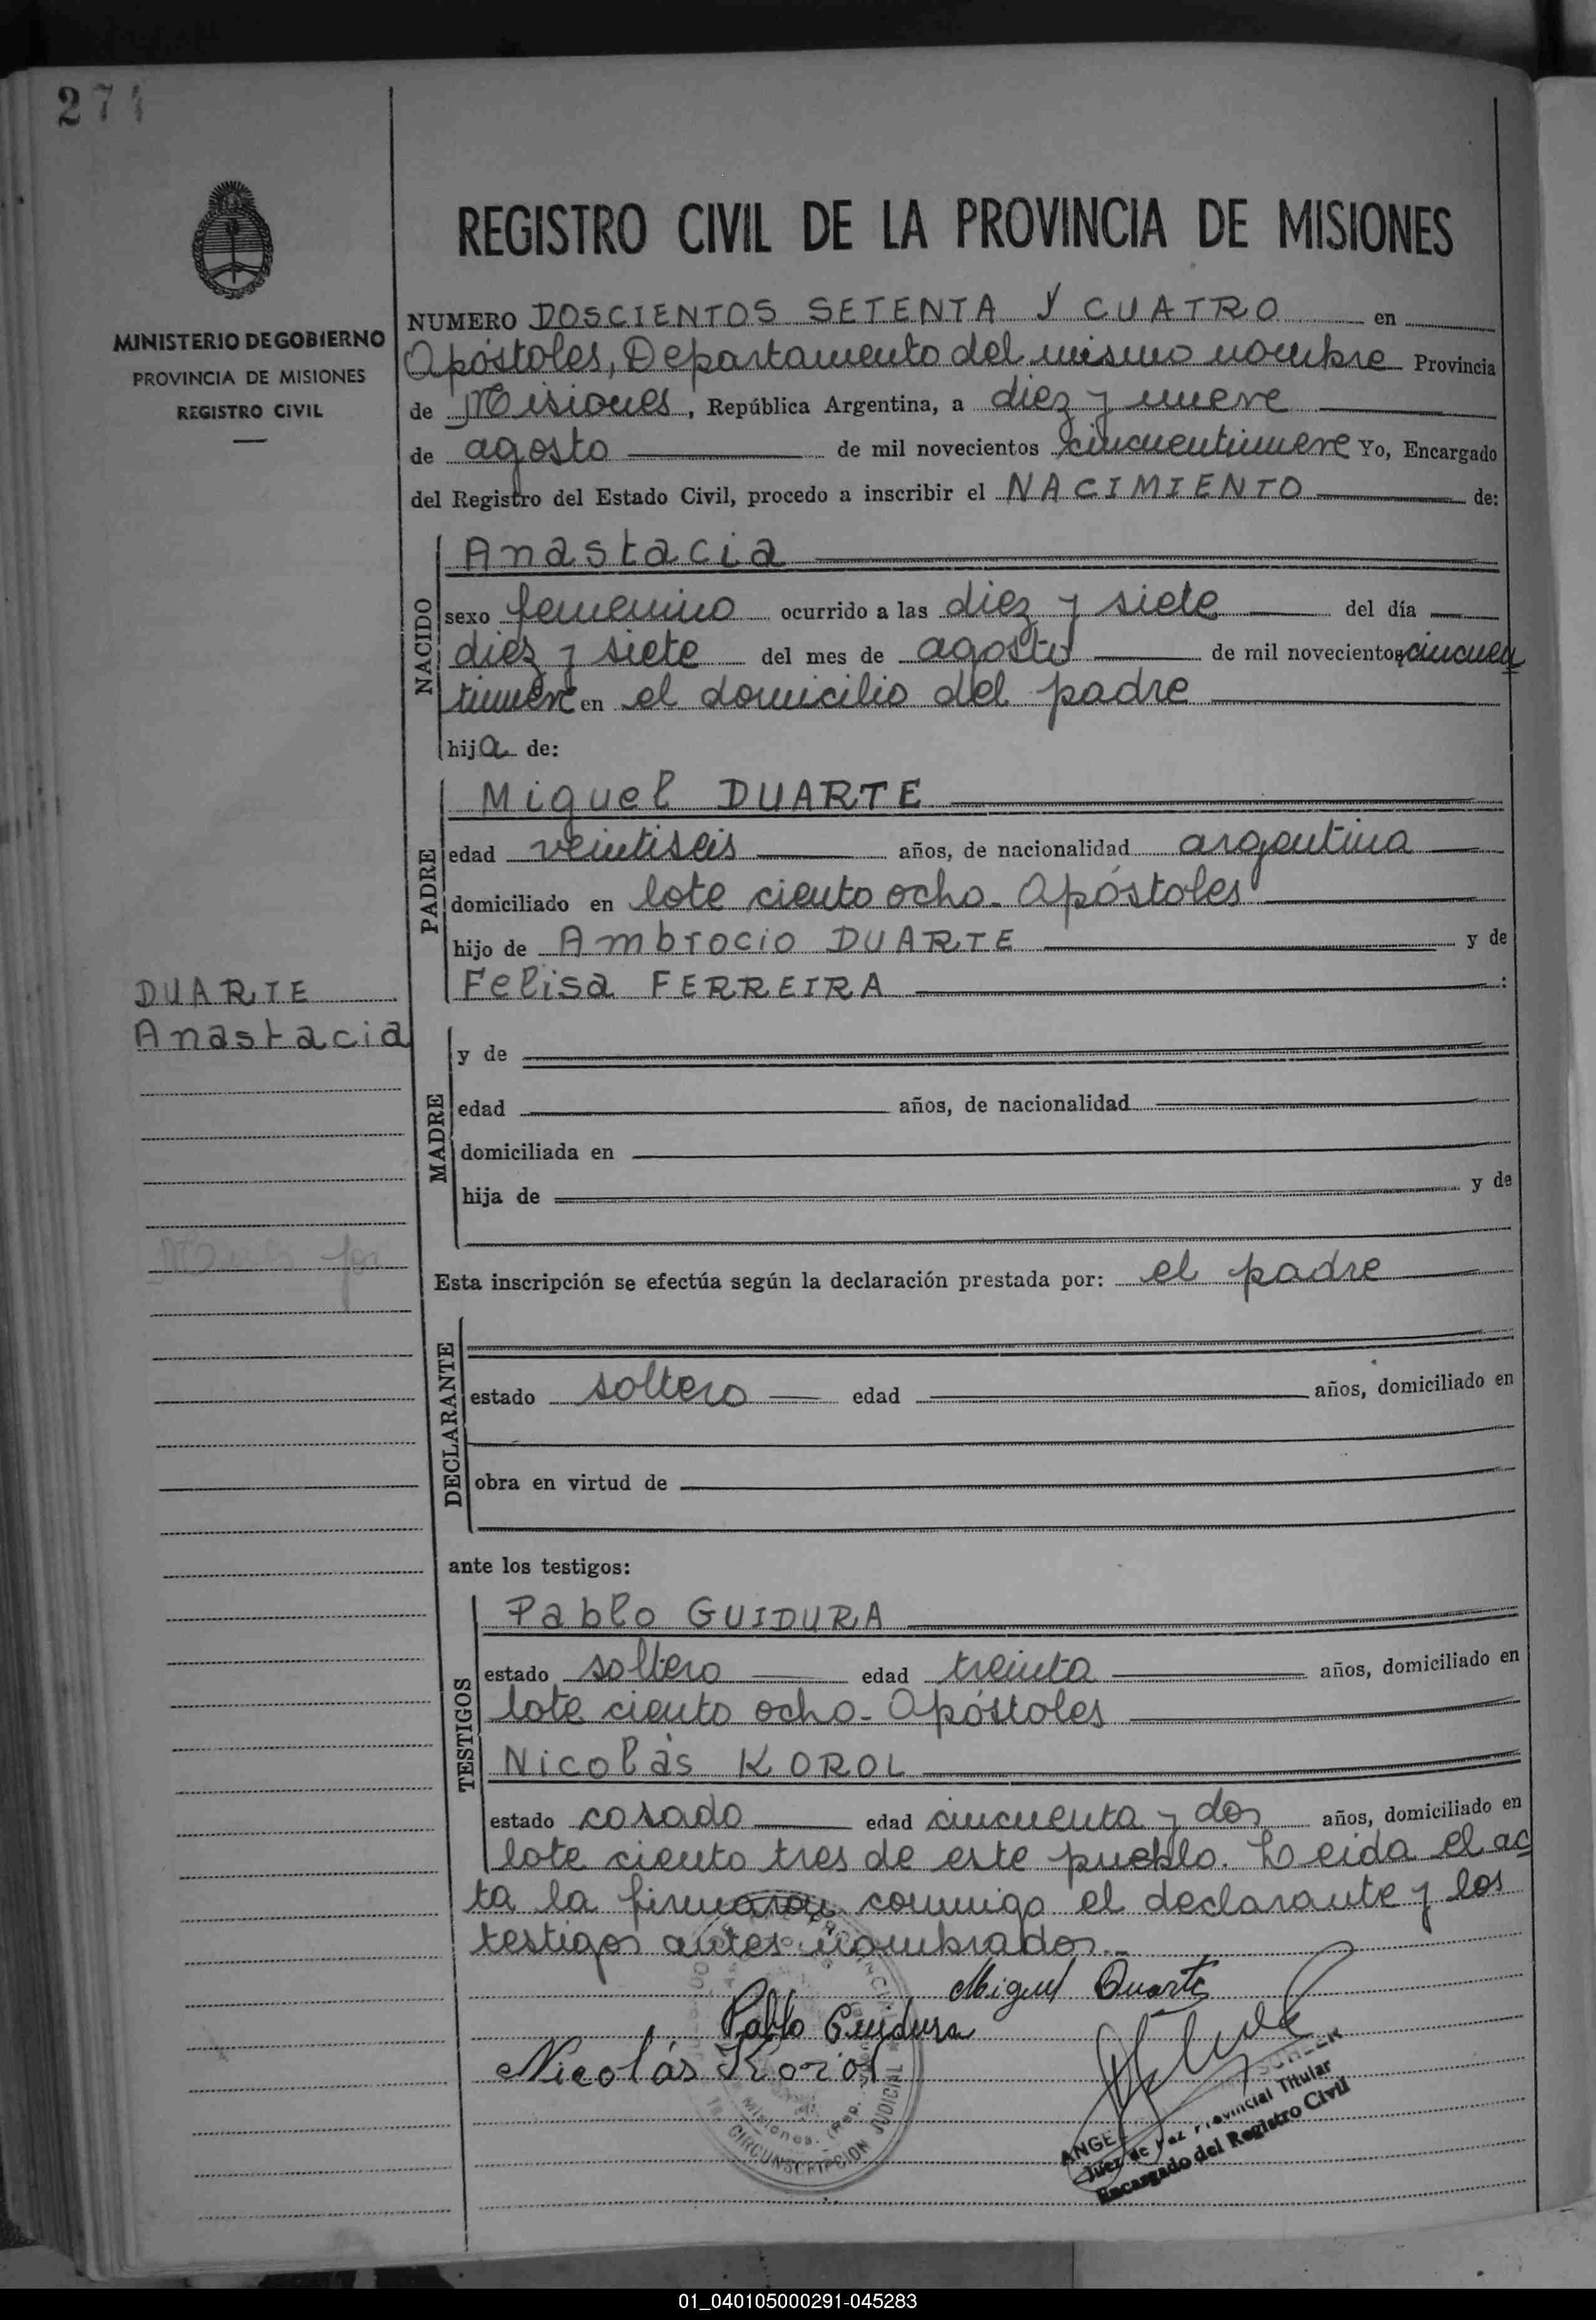 274
MINISTERIO DE GOBIERNO
PROVINCIA DE MISIONES
REGISTRO CIVIL
REGISTRO CIVIL DE LA PROVINCIA DE MISIONES
NUMERO DOSCIENTOS SETENTA Y CUATRO en
Apóstoles, Departamento del mismo nombre Provincia
de Misiones, República Argentina, a diez y nueve
de agosto de mil novecientos cincuentinueve Yo, Encargado
del Registro del Estado Civil, procedo a inscribir el NACIMIENTO de:
NACIDO
Anastacia
sexo femenino ocurrido a las diez y siete del día
diez y siete del mes de agosto de mil novecientos cincuen
tinueve en el domicilio del padre
hija de:
PADRE
Miguel DUARTE
edad veintiseis años, de nacionalidad argentina
domiciliado en lote ciento ocho - Apóstoles
hijo de Ambrocio DUARTE y de
Felisa FERREIRA :
DUARTE
Anastacia
MADRE
y de
edad años, de nacionalidad
domiciliada en
hija de y de
Esta inscripción se efectúa según la declaración prestada por: el padre
DECLARANTE
estado soltero edad años, domiciliado en
obra en virtud de
ante los testigos:
TESTIGOS
Pablo GUIDURA
estado soltero edad treinta años, domiciliado en
lote ciento ocho - Apóstoles
Nicolás KOROL
estado casado edad cincuenta y dos años, domiciliado en
lote ciento tres de este pueblo. Leida el ac
ta la firmaron conmigo el declarante y los
testigos antes nombrados.-
Miguel Duarte
Pablo Guidura
Nicolás Korol
Misiones. (Rep.
CIRCUNSCRIPCION JUDICIAL
ANGEL
Juez de Paz Provincial Titular
Encargado del Registro Civil
01_040105000291-045283